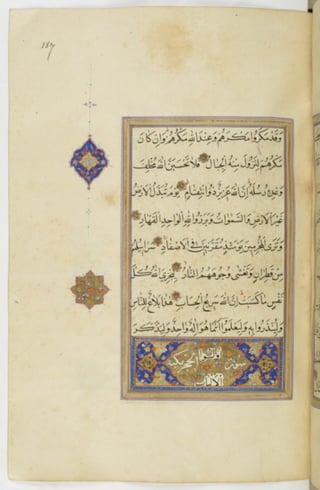 187
وَقَدْ مَكَرُوا مَكْرَهُمْ وَعِنْدَ اللهِ مَكْرُهُمْ وَاِنْ كَانَ
مَكْرُهُمْ لِتَزُولَ مِنْهُ الْجِبَالُ فَلَا تَحْسَبَنَّ اللهَ مُخْلِفَ
وَعْدِهِ رُسُلَهُ اِنَّ اللهَ عَزِيزٌ ذُو انْتِقَامٍ يَوْمَ تُبَدَّلُ الْاَرْضُ
غَيْرَ الْاَرْضِ وَالسَّمٰوَاتُ وَبَرَزُوا لِلّٰهِ الْوَاحِدِ الْقَهَّارِ
وَتَرَى الْمُجْرِمِينَ يَوْمَئِذٍ مُقَرَّنِينَ فِي الْاَصْفَادِ سَرَابِيلُهُمْ
مِنْ قَطِرَانٍ وَتَغْشَى وُجُوهَهُمُ النَّارُ لِيَجْزِيَ اللهُ كُلَّ
نَفْسٍ مَا كَسَبَتْ اِنَّ اللهَ سَرِيعُ الْحِسَابِ هٰذَا بَلَاغٌ لِلنَّاسِ
وَلِيُنْذَرُوا بِهِ وَلِيَعْلَمُوا اَنَّمَا هُوَ اِلٰهٌ وَاحِدٌ وَلِيَذَّكَّرَ
اولوا
سورة الحجر مكية
الالباب